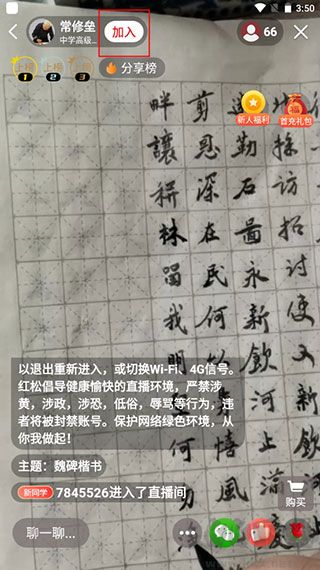 3:50
常修垒
中学高级...
加入
66
上榜 1 上榜 2 3
分享榜
新人福利
首充礼包
採訪招討
勒石啚永新飲河上
剪恩深在民何
畔讓
我明
何
風
以退出重新进入，或切换Wi-Fi、4G信号。
红松倡导健康愉快的直播环境，严禁涉
黄，涉政，涉恐，低俗，辱骂等行为，违
者将被封禁账号。保护网络绿色环境，从
你我做起！
主题：魏碑楷书
新同学 7845526进入了直播间
购买
聊一聊...